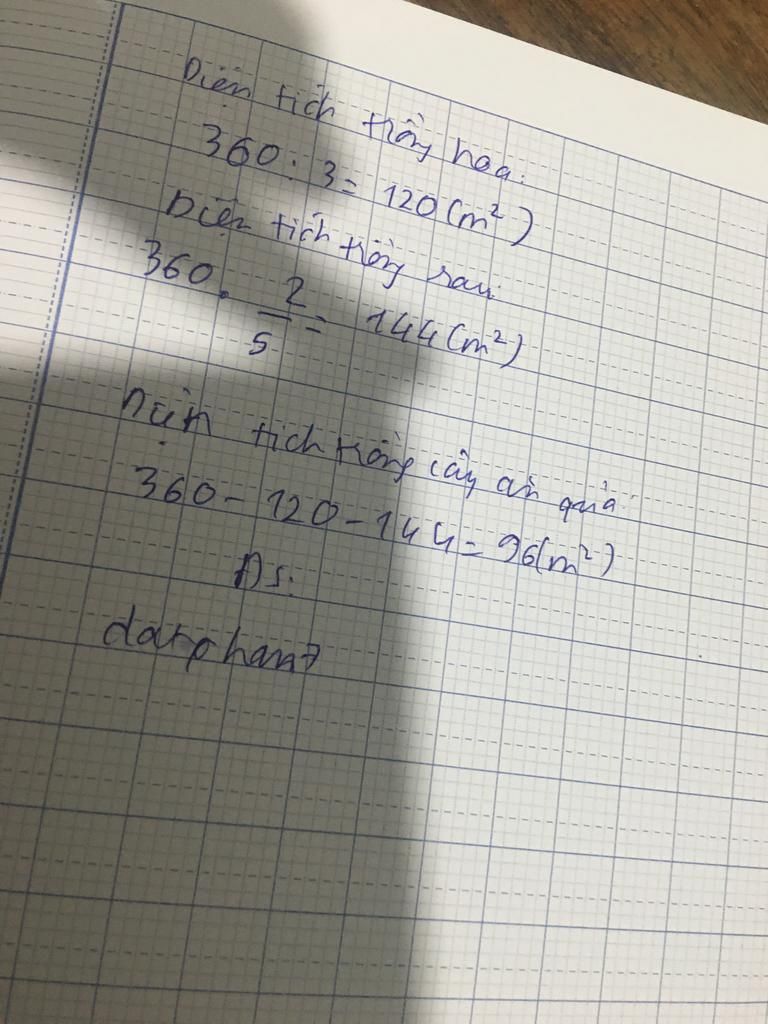 Diện tích trồng hoa:
360 : 3 = 120 (m²)
Diện tích trồng rau:
360 . 2/5 = 144 (m²)
Diện tích trồng cây ăn quả
360 - 120 - 144 = 96 (m²)
Đs: